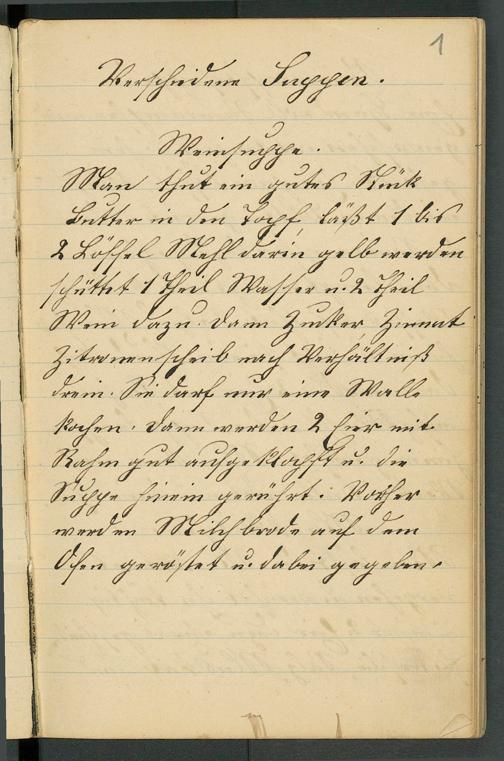 1
Verschiedene Suppen.
Weinsuppe.
Man thut ein gutes Stück
Butter in den Topf, läßt 1 bis
2 Löffel Mehl darin gelb werden
schüttet 1 Theil Wasser u. 2 Theil
Wein dazu. dann Zucker Zimmat
Zitronenscheib nach Verhältniß
drein. Sie darf nur eine Walle
kochen. dann werden 2 Eier mit
Rahm gut aufgeklopft u. die
Suppe hinein gerührt. Vorher
werden Milchbrode auf dem
Ofen geröstet u. dabei gegeben.